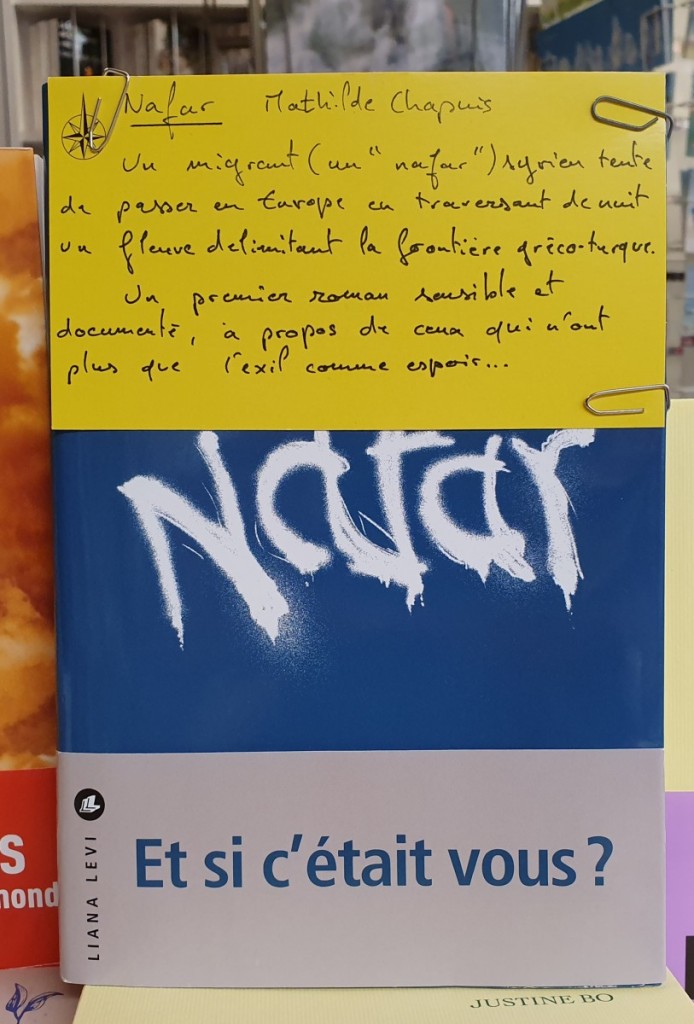 Nafar Mathilde Chapuis
Un migrant (un "nafar") syrien tente
de passer en Europe en traversant de nuit
un fleuve délimitant la frontière gréco-turque.
Un premier roman sensible et
documenté, à propos de ceux qui n'ont
plus que l'exil comme espoir...
Nafar
LIANA LEVI
Et si c'était vous ?
S
mond
JUSTINE BO